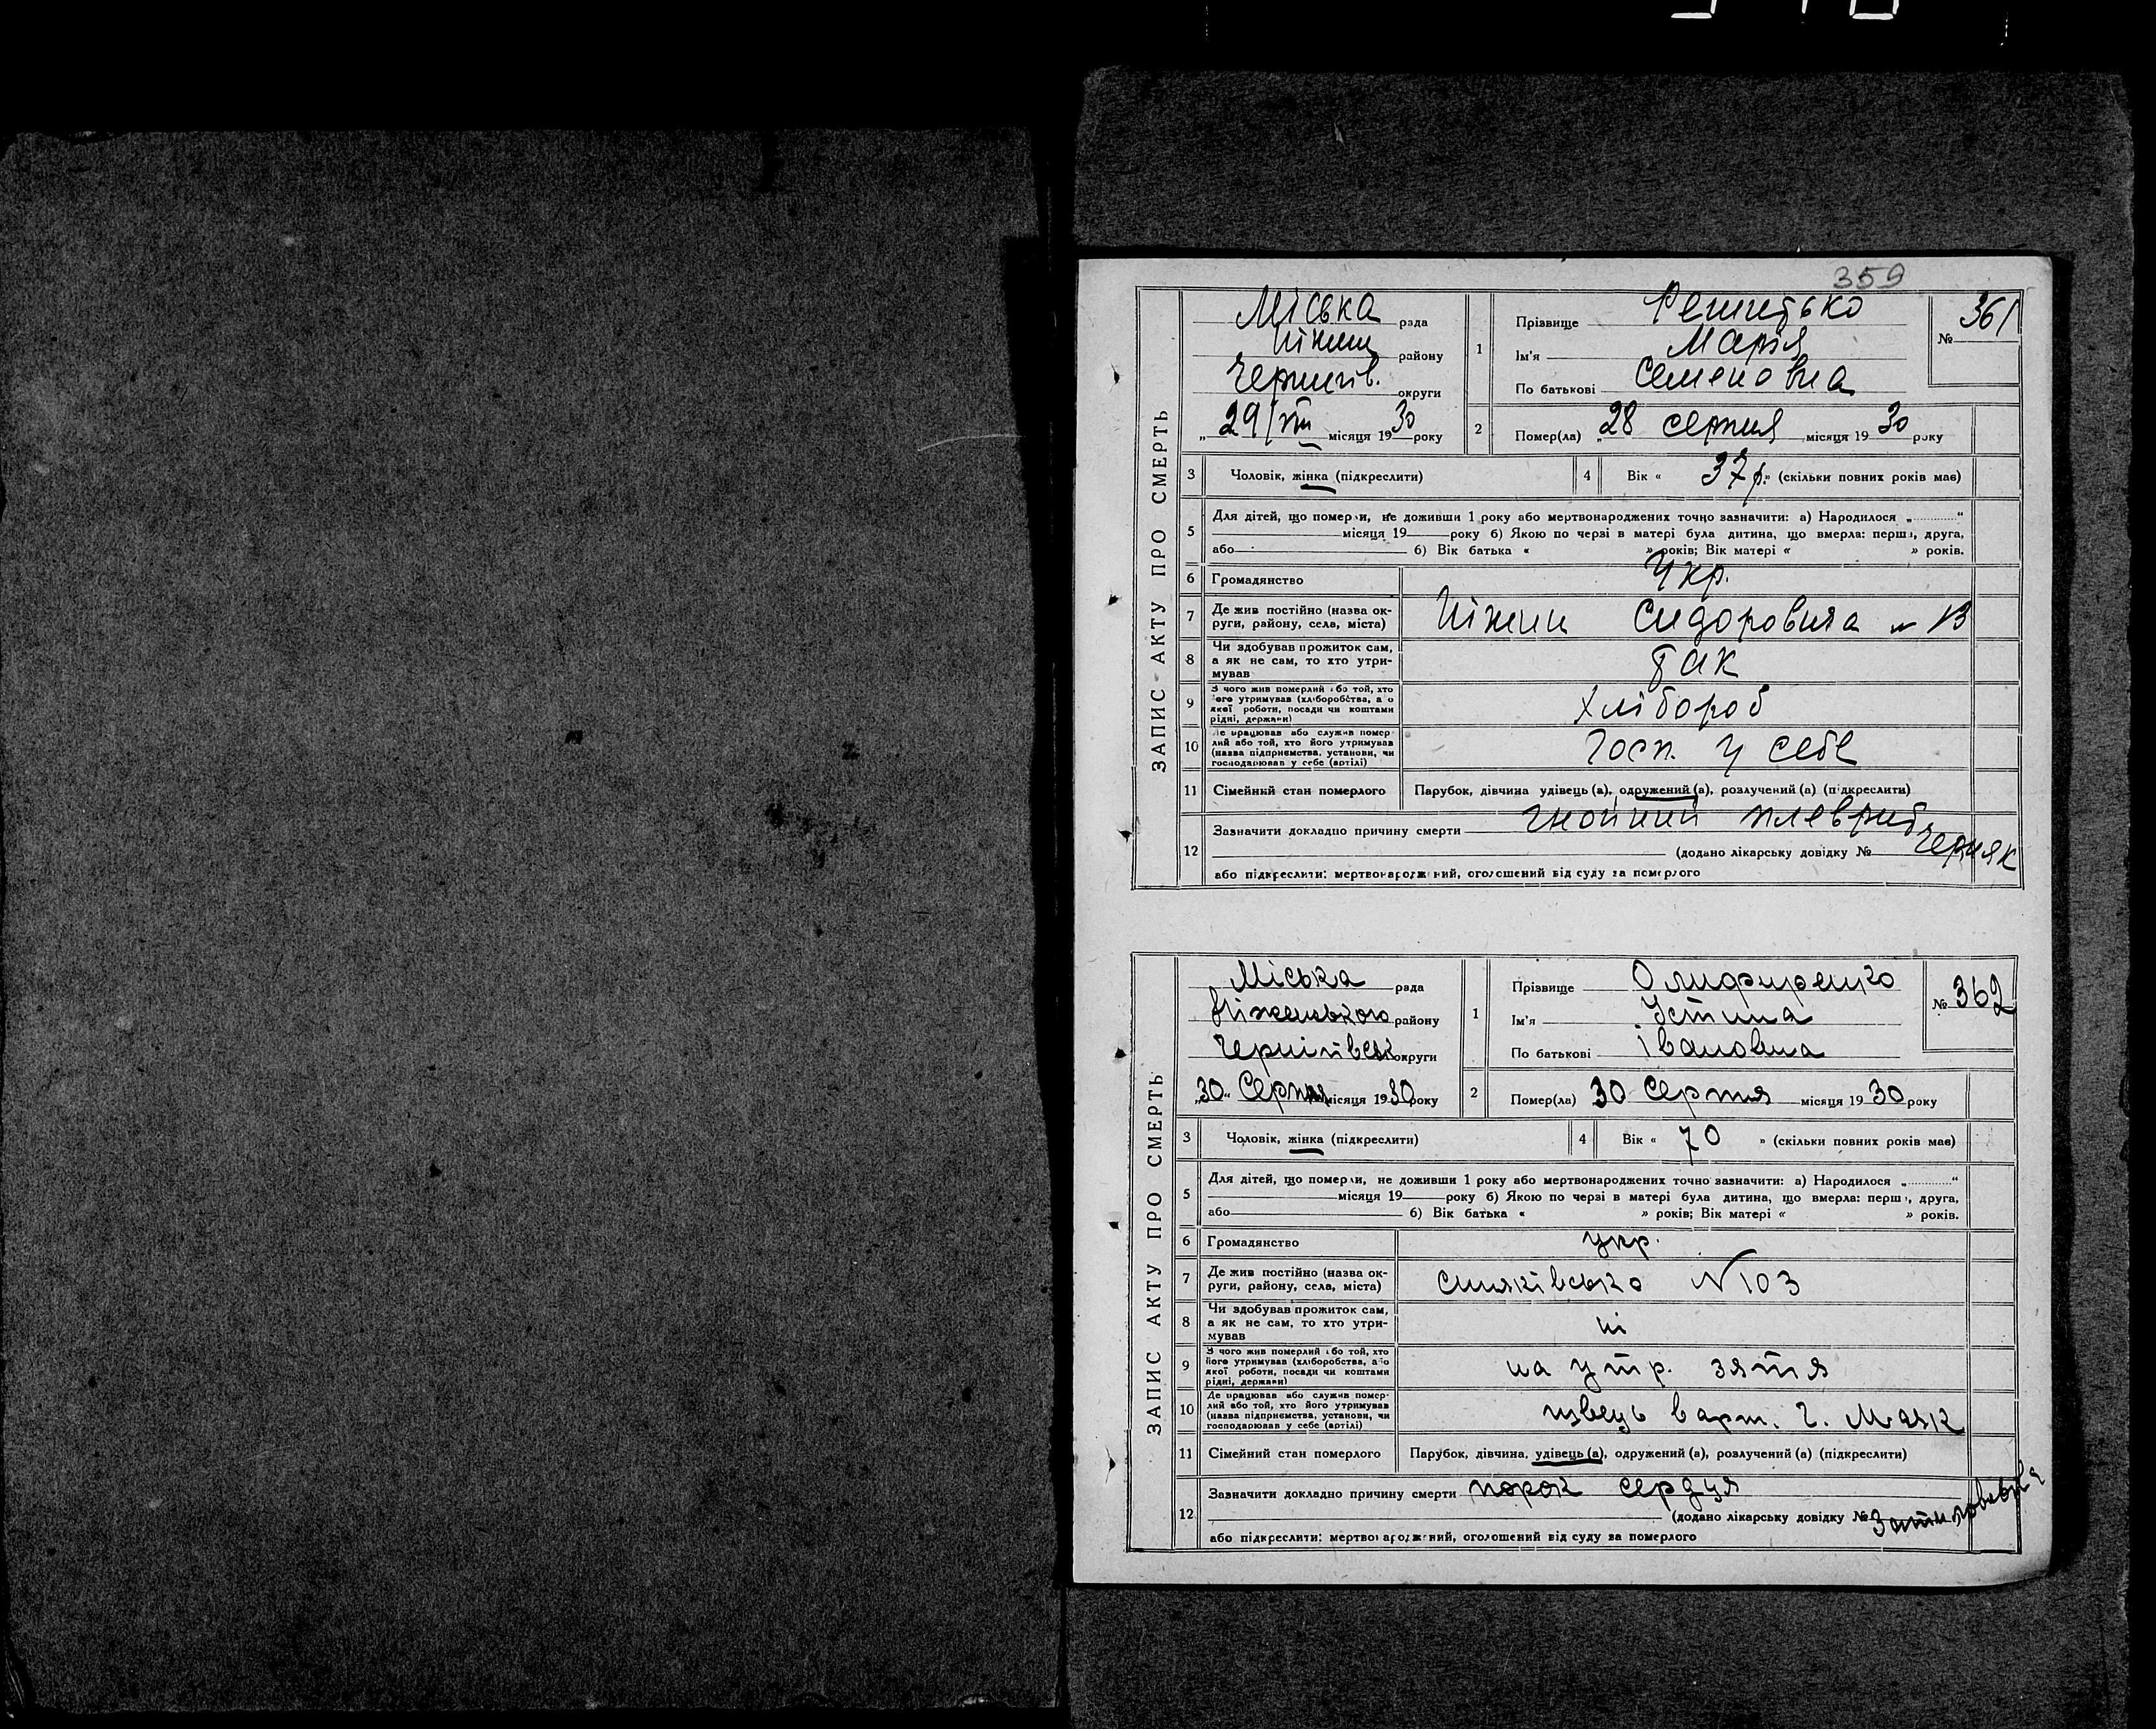 359
ЗАПИС АКТУ ПРО СМЕРТЬ
Міська рада
Ніжин району
Чернигів. округи
„29/VIII місяця 1930 року
1 Прізвище Решетько
Ім'я Марія
По батькові Семеновна
№ 361
2 Помер(ла) „28 серпня місяця 1930 року
3 Чоловік, жінка (підкреслити)
4 Вік « 37 р.» (скільки повних років має)
5 Для дітей, що померли, не доживши 1 року або мертвонароджених точно зазначити: а) Народилося „ “
місяця 19 року б) Якою по черзі в матері була дитина, що вмерла: перша, друга,
або б) Вік батька « » років; Вік матері « » років.
6 Громадянство Укр.
7 Де жив постійно (назва ок-
руги, району, села, міста) Ніжин Сидоровича 13
8 Чи здобував прожиток сам,
а як не сам, то хто утри-
мував так
9 З чого жив померлий або той, хто
його утримував (хліборобства, або
якої роботи, посади чи коштами
рідні, держави) Хлібороб
10 Де працював або служив помер-
лий або той, хто його утримував
(назва підприємства, установи, чи
господарював у себе (артілі) Госп. у себе
11 Сімейний стан померлого Парубок, дівчина удівець (а), одружений (а), розлучений (а) (підкреслити)
12 Зазначити докладно причину смерти гнойний плеврит
(додано лікарську довідку № Черняк
або підкреслити: мертвонароджений, оголошений від суду за померлого
ЗАПИС АКТУ ПРО СМЕРТЬ
Міська рада
Ніженського району
Чернігівськ округи
„30“ Серпня місяця 1930 року
1 Прізвище Олифиренко
Ім'я Устина
По батькові Івановна
№ 362
2 Помер(ла) 30 Серпня місяця 1930 року
3 Чоловік, жінка (підкреслити)
4 Вік « 70 » (скільки повних років має)
5 Для дітей, що померли, не доживши 1 року або мертвонароджених точно зазначити: а) Народилося „ “
місяця 19 року б) Якою по черзі в матері була дитина, що вмерла: перша, друга,
або б) Вік батька « » років; Вік матері « » років.
6 Громадянство укр.
7 Де жив постійно (назва ок-
руги, району, села, міста) Синяківська N 103
8 Чи здобував прожиток сам,
а як не сам, то хто утри-
мував ні
9 З чого жив померлий або той, хто
його утримував (хліборобства, або
якої роботи, посади чи коштами
рідні, держави) на утр. зятя
10 Де працював або служив помер-
лий або той, хто його утримував
(назва підприємства, установи, чи
господарював у себе (артілі) швець в арт. Ч. Маяк
11 Сімейний стан померлого Парубок, дівчина, удівець (а), одружений (а), розлучений (а) (підкреслити)
12 Зазначити докладно причину смерти порок сердця
(додано лікарську довідку №
або підкреслити: мертвонароджений, оголошений від суду за померлого